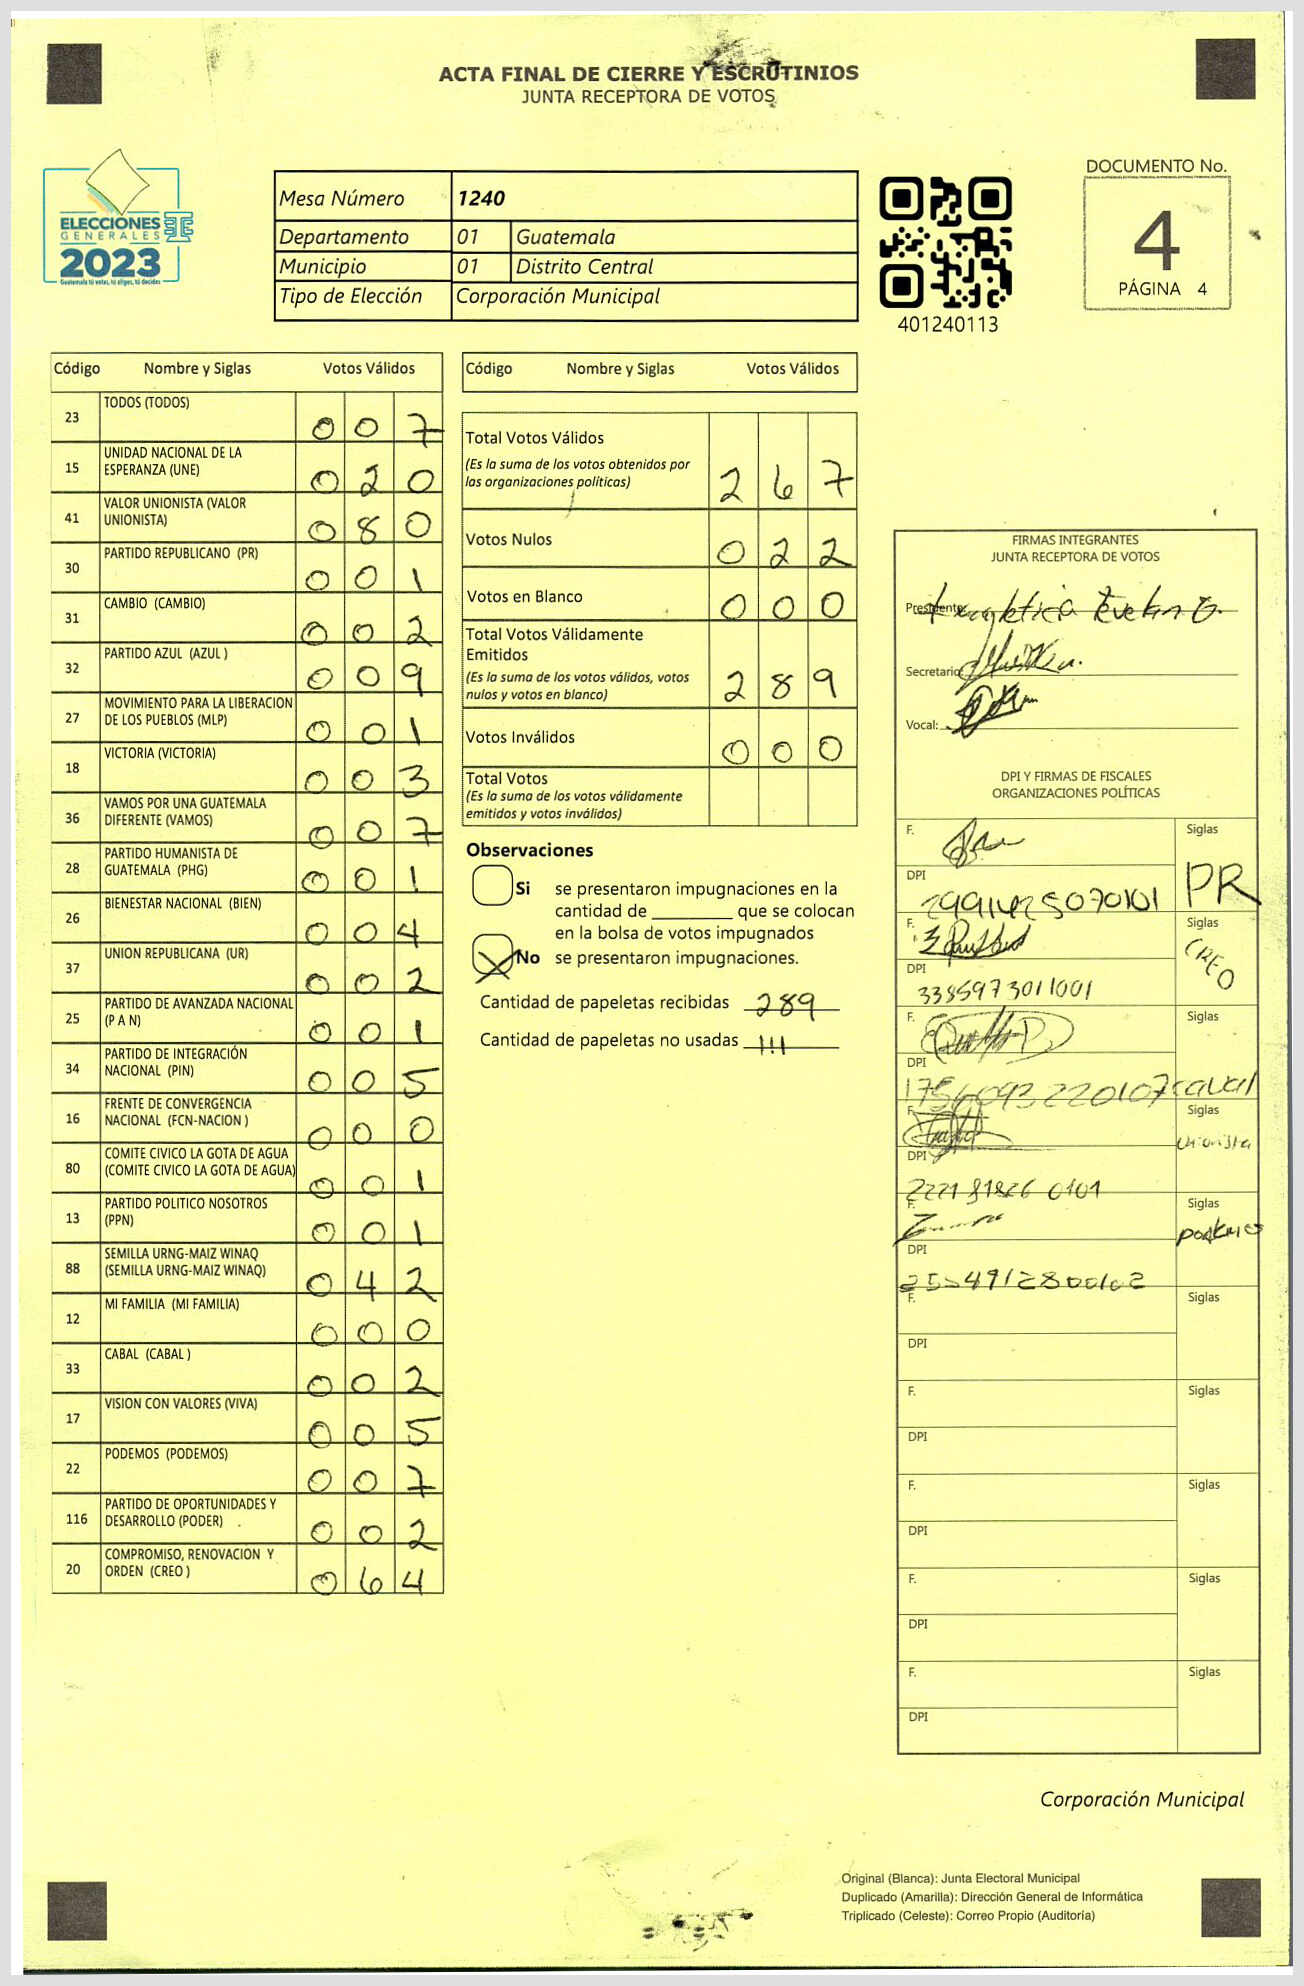 ACTA FINAL DE CIERRE Y ESCRUTINIOS
JUNTA RECEPTORA DE VOTOS
ELECCIONES
GENERALES
2023
Guatemala tú votas, tú eliges, tú decides
TSE
Mesa Número 1240
Departamento 01 Guatemala
Municipio 01 Distrito Central
Tipo de Elección Corporación Municipal
401240113
DOCUMENTO No.
4
PÁGINA 4
Código Nombre y Siglas Votos Válidos
23 TODOS (TODOS) 0 0 7
15 UNIDAD NACIONAL DE LA
ESPERANZA (UNE) 0 2 0
41 VALOR UNIONISTA (VALOR
UNIONISTA) 0 8 0
30 PARTIDO REPUBLICANO (PR) 0 0 1
31 CAMBIO (CAMBIO) 0 0 2
32 PARTIDO AZUL (AZUL ) 0 0 9
27 MOVIMIENTO PARA LA LIBERACION
DE LOS PUEBLOS (MLP) 0 0 1
18 VICTORIA (VICTORIA) 0 0 3
36 VAMOS POR UNA GUATEMALA
DIFERENTE (VAMOS) 0 0 7
28 PARTIDO HUMANISTA DE
GUATEMALA (PHG) 0 0 1
26 BIENESTAR NACIONAL (BIEN) 0 0 4
37 UNION REPUBLICANA (UR) 0 0 2
25 PARTIDO DE AVANZADA NACIONAL
(P A N) 0 0 1
34 PARTIDO DE INTEGRACIÓN
NACIONAL (PIN) 0 0 5
16 FRENTE DE CONVERGENCIA
NACIONAL (FCN-NACION ) 0 0 0
80 COMITE CIVICO LA GOTA DE AGUA
(COMITE CIVICO LA GOTA DE AGUA) 0 0 1
13 PARTIDO POLITICO NOSOTROS
(PPN) 0 0 1
88 SEMILLA URNG-MAIZ WINAQ
(SEMILLA URNG-MAIZ WINAQ) 0 4 2
12 MI FAMILIA (MI FAMILIA) 0 0 0
33 CABAL (CABAL ) 0 0 2
17 VISION CON VALORES (VIVA) 0 0 5
22 PODEMOS (PODEMOS) 0 0 7
116 PARTIDO DE OPORTUNIDADES Y
DESARROLLO (PODER) 0 0 2
20 COMPROMISO, RENOVACION Y
ORDEN (CREO ) 0 6 4
Código Nombre y Siglas Votos Válidos
Total Votos Válidos
(Es la suma de los votos obtenidos por
las organizaciones políticas) 2 6 7
Votos Nulos 0 2 2
Votos en Blanco 0 0 0
Total Votos Válidamente
Emitidos
(Es la suma de los votos válidos, votos
nulos y votos en blanco) 2 8 9
Votos Inválidos 0 0 0
Total Votos
(Es la suma de los votos válidamente
emitidos y votos inválidos)
Observaciones
Si se presentaron impugnaciones en la
cantidad de ________ que se colocan
en la bolsa de votos impugnados
No se presentaron impugnaciones.
Cantidad de papeletas recibidas 289
Cantidad de papeletas no usadas 111
FIRMAS INTEGRANTES
JUNTA RECEPTORA DE VOTOS
Presidente:
Secretario:
Vocal:
DPI Y FIRMAS DE FISCALES
ORGANIZACIONES POLÍTICAS
F. Siglas
PR
DPI
F. Siglas
CREO
DPI
3385973011001
F. Siglas
DPI
cabal
F. Siglas
Unionista
DPI
F. Siglas
DPI
F. Siglas
DPI
F. Siglas
DPI
F. Siglas
DPI
F. Siglas
DPI
F. Siglas
DPI
Corporación Municipal
Original (Blanca): Junta Electoral Municipal
Duplicado (Amarilla): Dirección General de Informática
Triplicado (Celeste): Correo Propio (Auditoría)